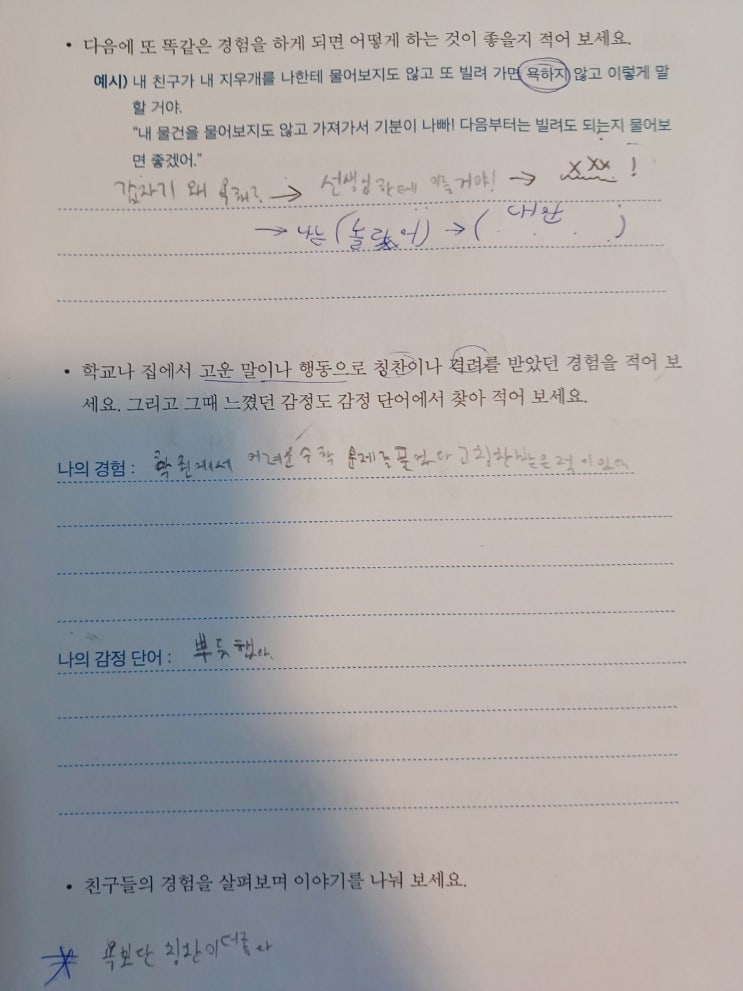 • 다음에 또 똑같은 경험을 하게 되면 어떻게 하는 것이 좋을지 적어 보세요.
예시) 내 친구가 내 지우개를 나한테 물어보지도 않고 또 빌려 가면 욕하지 않고 이렇게 말
할 거야.
“내 물건을 물어보지도 않고 가져가서 기분이 나빠! 다음부터는 빌려도 되는지 물어보
면 좋겠어.”
갑자기 왜 욕해? → 선생님한테 이를거야! → xxx!
→ 나는 (놀랐어) → ( 대안 )
• 학교나 집에서 고운 말이나 행동으로 칭찬이나 격려를 받았던 경험을 적어 보
세요. 그리고 그때 느꼈던 감정도 감정 단어에서 찾아 적어 보세요.
나의 경험 : 학원에서 어려운 수학 문제를 풀었다고 칭찬받은 적이 있어
나의 감정 단어 : 뿌듯했다.
• 친구들의 경험을 살펴보며 이야기를 나눠 보세요.
욕보단 칭찬이 더좋다